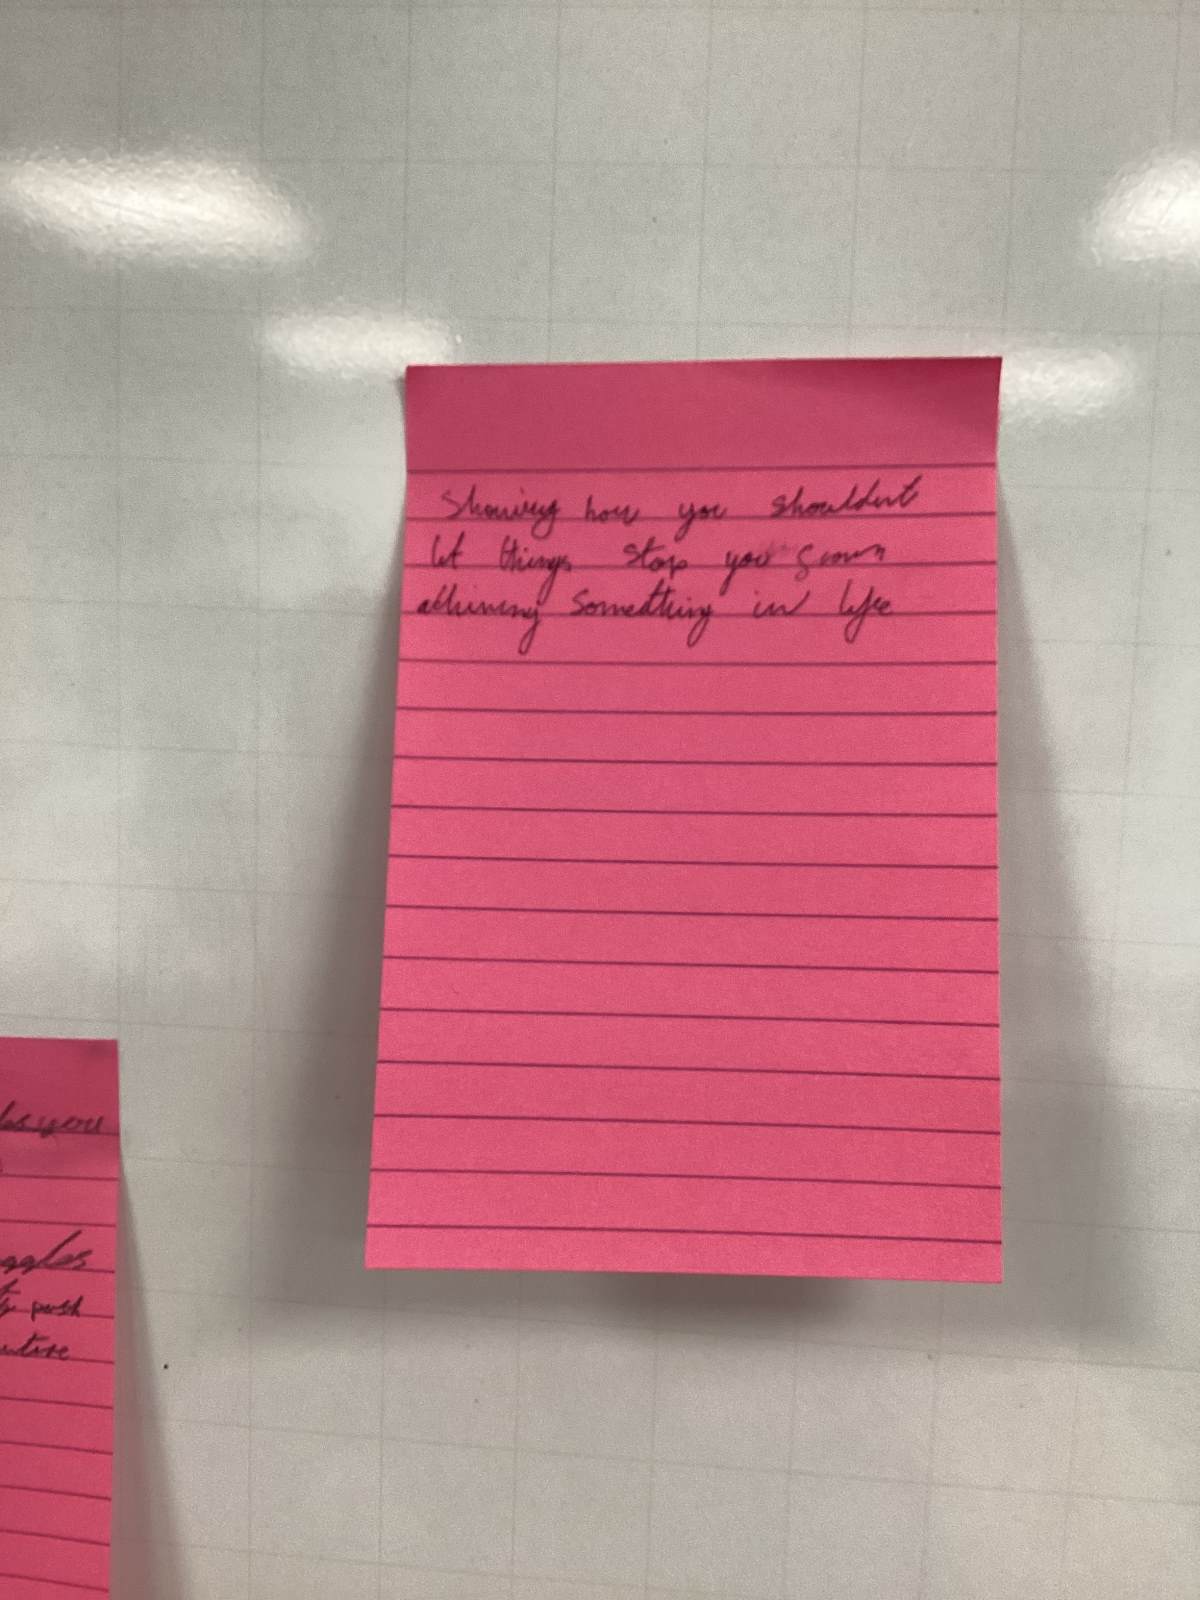 Showing how you shouldnt
let things stop you from
achining something in life
les you
ggles
push
uture